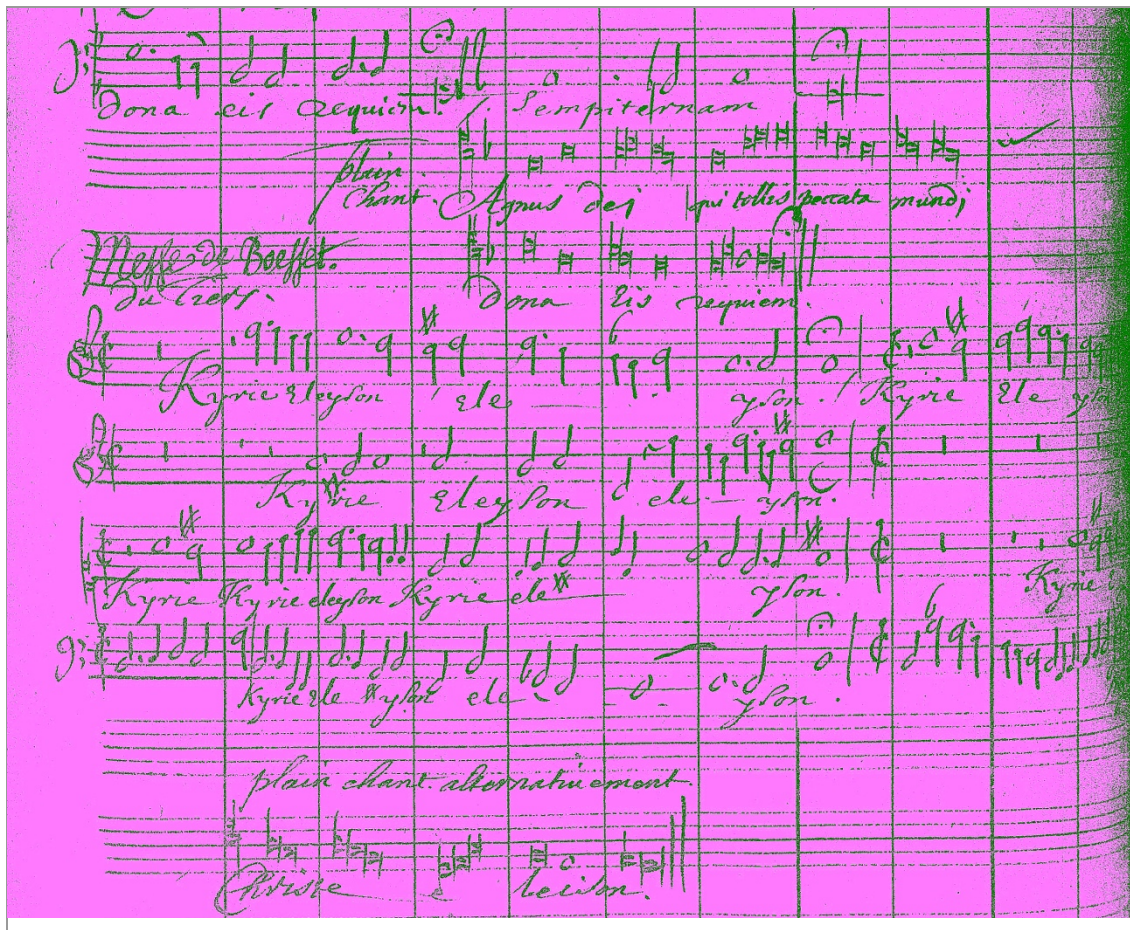 Dona eis Requiem. Sempiternam
plain
chant. Agnus dei qui tollis peccata mundi
Messe de Boesset.
du 1ers. Dona Eis requiem.
Kyrie Eleyson Ele yson. Kyrie Ele yson
Kyrie Eleyson ele yson.
Kyrie Kyrie eleyson Kyrie ele yson. Kyrie
Kyrie Ele yson ele yson.
plain chant alternatiuement.
Christe e leison.